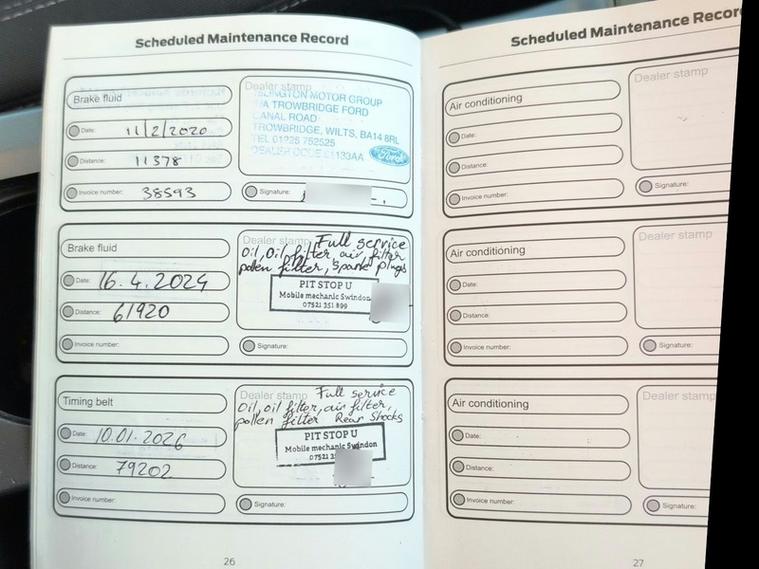 Scheduled Maintenance Record
Brake fluid
Date: 11/2/2020
Distance: 11378
Invoice number: 38593
Dealer stamp
ISLINGTON MOTOR GROUP
T/A TROWBRIDGE FORD
CANAL ROAD
TROWBRIDGE, WILTS, BA14 8RL
TEL 01225 752525
DEALER CODE 41133AA
Ford
Signature:
Brake fluid
Date: 16.4.2024
Distance: 61920
Invoice number:
Dealer stamp Full service
Oil, Oil filter, air filter
pollen filter, Spark plugs
PIT STOP U
Mobile mechanic Swindon
07521 351 899
Signature:
Timing belt
Date: 10.01.2026
Distance: 79202
Invoice number:
Dealer stamp Full service
Oil, oil filter, air filter,
pollen filter Rear Shocks
PIT STOP U
Mobile mechanic Swindon
07521
Signature:
26
Scheduled Maintenance Record
Air conditioning
Date:
Distance:
Invoice number:
Dealer stamp
Signature:
Air conditioning
Date:
Distance:
Invoice number:
Dealer stamp
Signature:
Air conditioning
Date:
Distance:
Invoice number:
Dealer stamp
Signature:
27